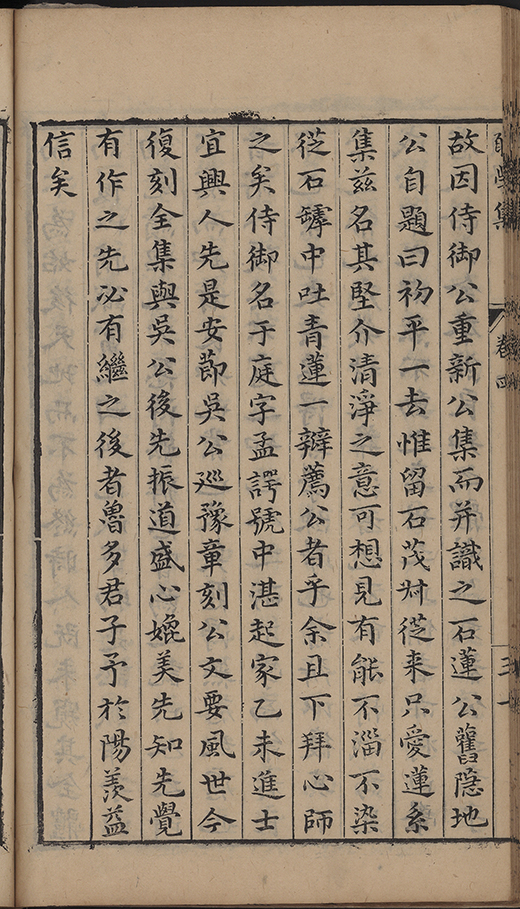 故因侍御公重新公集而并識之石蓮公舊隐地
公自題曰初平一去惟留石茂叔從来只愛蓮系
集兹名其堅介清淨之意可想見有能不淄不染
從石罅中吐青蓮一辦薦公者乎余且下拜心師
之矣侍御名于庭字孟諤號中湛起家乙未進士
宜興人先是安節吳公巡豫章刻公文要風世今
復刻全集與吳公後先振道盛心媲美先知先覺
有作之先必有繼之後者魯多君子予於陽羨益
信矣
集
卷四
三十